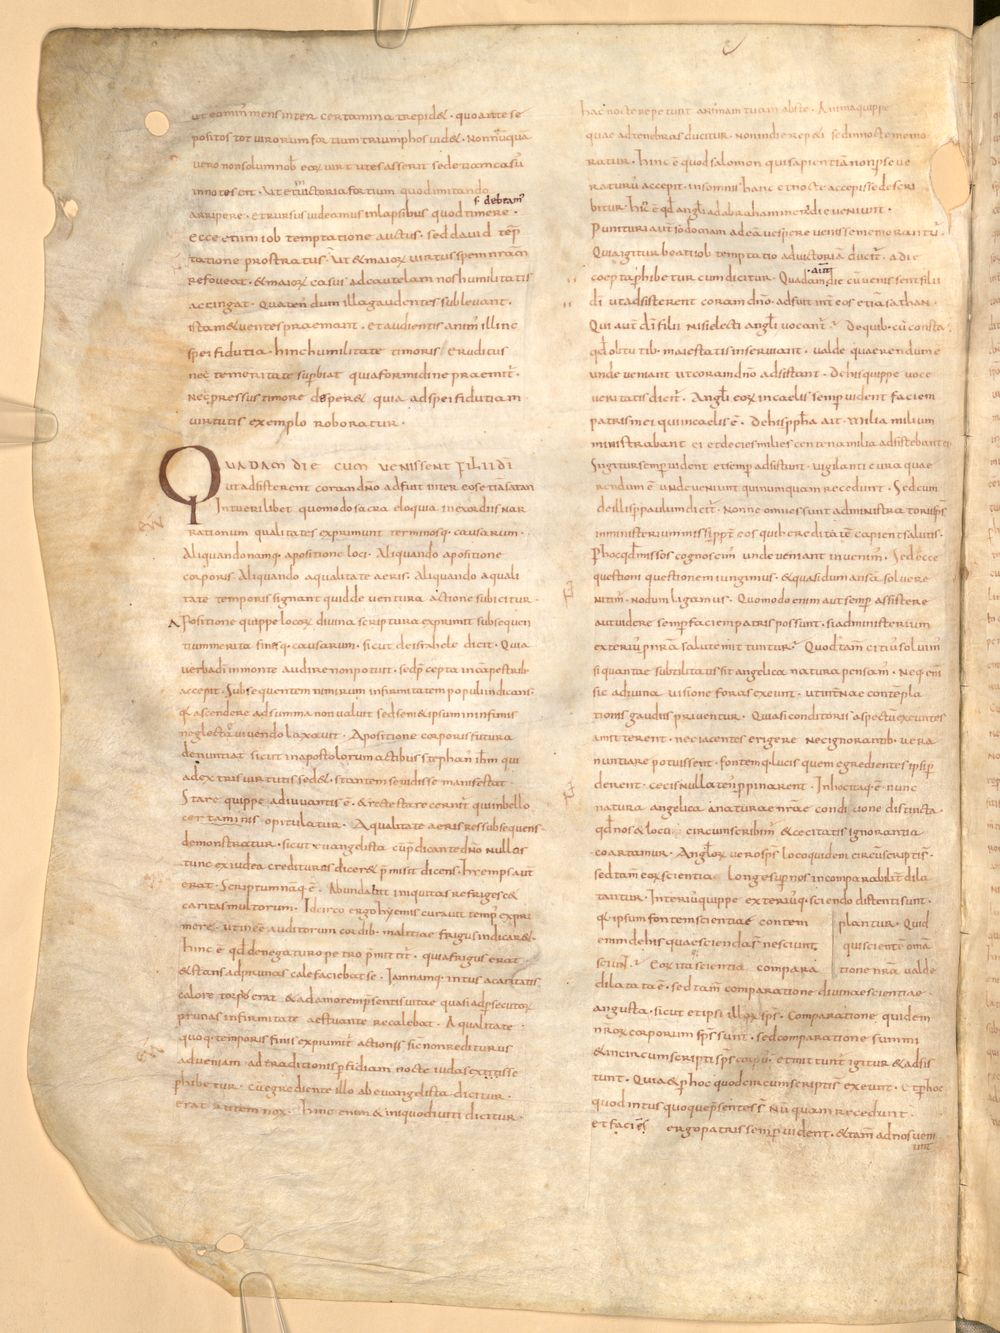 ut eom̅ mens inter certamina trepid&. quo ante se
positos tot virorum fortium triumphos uid&. Nonnūqua
vero non solum nob̄ eoꝝ virtutes asserit sed etiam casū
innotescit. Ut et in̄ victoria fortium quod imitando
s̄ debeam̄
arripere. et rursus uideamus in lapsibus quod timere.
Ecce etenim iob temptatione auctus. sed david tēp
tatione prostratus. ut & maioꝝ virtus spem nr̄am
refoveat. & maioꝝ casus ad cautelam nos humilitatis
accingat. Quaten̄ dum illa gaudentes sublevant.
ista metuentes praemant. et audientis anim̄ illinc
spei fidutia. hinc humilitate timoris eruditus
nec temeritate sup̄biat quia formidine praemit̄.
Nec pressus timore desper& quia ad spei fidutiam
virtutis exemplo roboratur.
QUADAM DIE CUM VENISSENT FILII DĪ
ut adsisterent coram dn̄o adfuit inter eos etiā satan
Intueri libet quomodo sacra eloquia in exordiis nar
rationum qualitates exprimunt terminosq. causarum.
Aliquando namq. a positione loci. Aliquando a positione
corporis. Aliquando a qualitate aeris. Aliquando a quali
tate temporis signant quid de ventura actione subicitur.
A Positione quippe locoꝝ divina scriptura exprimit subsequen
tium merita finesq. causarum. sicut de israhele dicit. Quia
verba dī in monte audire non potuit. sed p̄cepta in cāpestrib.
accepit. Subsequentem nimirum infirmitatem populi indicans.
q̄ ascendere ad summa non valuit sed semetipsum in infimis
neglectā vivendo laxavit. A positione corporis futura
denuntiat sicut in apostolorum actibus stephan̄ ih̄m qui
ad extris virtutis sed&. stantem se uidisse manifestat
Stare quippe adiuvantis ē. & recte stare cernit̄ qui in bello
certaminis opitulatur. A qualitate aeris res subsequens
demonstratur. sicut evangelista cū p̄dicante dn̄o nullos
tunc ex iudea credituros dicer& p̄misit dicens. hiemps aut
erat. Scriptum nāq. ē. Abundabit iniquitas refriges&
caritas multorum. Idcirco ergo hyemis curavit temp̄ expri
mere. ut inee auditorum cordib. malitiae frigus indicar&.
hinc ē qd̄ denegaturo petro p̄mittit̄. quia frigus erat
& stans ad prunas calefaciebat se. Iam namq. intus a caritatis
calore torp̄s erat & ad amorem p̄sentis uitae quasi ad p̄secutoꝝ
prunas infirmitate aestuante recalebat. A qualitate
quoq. temporis finis exprimit̄ actionis sic non rediturus
ad veniam. ad traditionis p̄fidiam nocte iudas exiisse
phibetur. cū egrediente illo ab evangelista dicitur.
erat autem nox. hinc enim & iniquo diviti dicitur.
hac nocte repetunt animam tuam abs te. Anima quippe
quae ad tenebras ducitur. non in die repeti sed in nocte memo
ratur. hinc ē quod salomon qui sapientiā non p̄seve
raturū accepit. in somnis hanc et nocte accepisse descri
bitur. hinc ē qd̄ angli ad abraham meridie veniunt.
Punituri aut̄ sodomam ad eā vespere venisse memorantur̄.
Quia igitur beati iob temptatio ad victoriā ducit̄. a die
coepta p̄hibetur cum dicitur. Quadam die cū venissent filii
aūt
di ut adsisterent coram dn̄o. adfuit int̄ eos etiā sathan.
Qui aut̄ dī filii nisi electi angl̄i vocant̄. De quib. cū consta
qd̄ obtutib. maiestatis inserviant. valde quaerendum ē
unde veniant ut coram dn̄o adsistant. De his quippe voce
veritatis dicit̄. Angl̄i eoꝝ in caelis semp̄ uident faciem
patris mei qui in caelis ē. De his ppha ait. Milia milium
ministrabant ei et decies milies centena milia adsistebant ei.
Si igitur semp̄ uident et semp̄ adsistunt. vigilanti cura quae
rendum ē unde veniunt qui numquam recedunt. Sed cum
de illis p̄ paulum dicit̄. Nonne omnes sunt administratorii sp̄s
in ministerium missi ppt̄ eos qui hereditatē capient salutis.
P̄ hoc qd̄ missos cognoscim̄ unde veniant invenim̄. Sed ecce
questioni questionem iungimus. & quasi dum ansā solvere
nitim̄. nodum ligamus. Quomodo enim aut semp̄ assistere
aut videre semp̄ faciem patris possunt. si ad ministerium
exteriū p nr̄a salute mittuntur. Quod tam̄ citiū solvim̄
si quantae subtilitatis sit angelica natura pensam̄. Neq. eni
sic a divina visione foras exeunt. ut int̄nae contepla
tionis gaudiis priventur. Quia si conditoris aspectū exeuntes
amitterent. nec iacentes erigere nec ignorantib. vera
nuntiare potuissent. fontemq. lucis quem egredientes ipsi p
derent. cecis nullatenus ppinarent. In hoc itaq. ē nunc
natura angelica a naturae nr̄ae condicione distincta.
qd̄ nos & loco circumscribim̄ & cecitatis ignorantia
coartamur. Angl̄oꝝ vero sp̄s loco quidem circūscripti s̄.
sed tam̄ eoꝝ scientia longe sup nos incomparabilit̄ dila
tantur. Interiūs quippe exteriūsq. sciendo distenti sunt.
qr ipsum fontem scientiae contem plantur. Quid
enim de his quae scienda s̄ nesciunt qui scientē omīa
sciunt. Eoꝝ ita scientia compara tione nr̄a valde
dilatata ē. sed tam̄ comparatione divinae scientiae
angusta. sicut et ipsi illoꝝ sp̄s. Comparatione quidem
nr̄oꝝ corporum sp̄s sunt. sed comparatione summi
& incircumscripti sp̄s corpū. et mittunt̄ igitur & adsis
tunt. Quia & p̄ hoc quod circumscripti s̄ exeunt. et p̄ hoc
quod intus quoque p̄sentes s̄ Nūquam recedunt.
et faciē ergo patris semp̄ uident. & tam̄ ad nos veni
unt̄